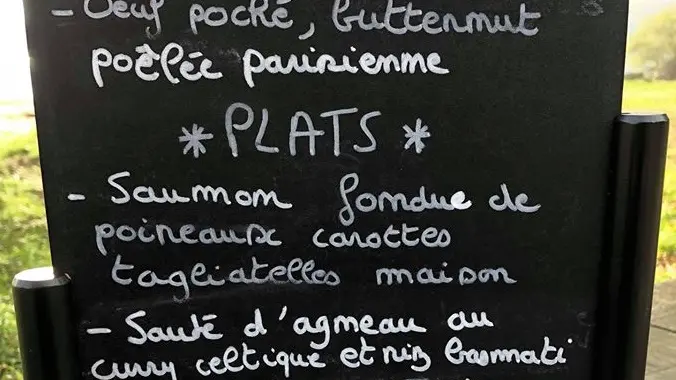 - Oeuf poché, butternut
poêlée parisienne
* PLATS *
- Saumon fondue de
poireaux carottes
tagliatelles maison
- Sauté d'agneau au
curry celtique et riz basmati